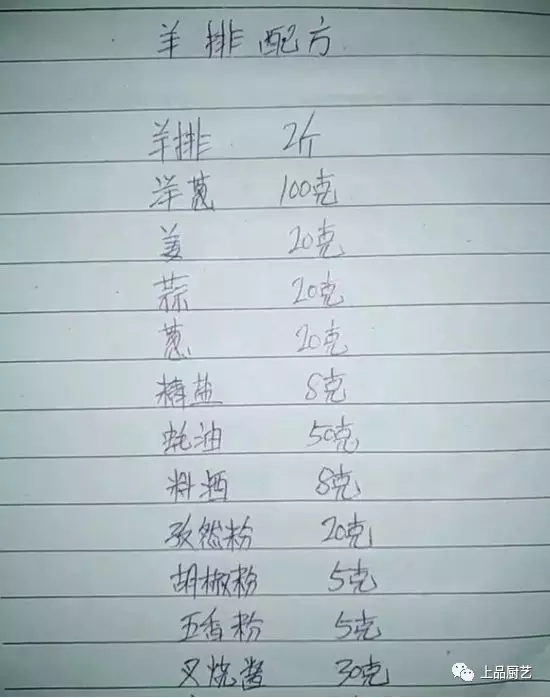 羊排配方
羊排 2斤
洋葱 100克
姜 20克
蒜 20克
葱 20克
椿盐 8克
蚝油 50克
料酒 8克
孜然粉 20克
胡椒粉 5克
五香粉 5克
叉烧酱 30克
上品厨艺